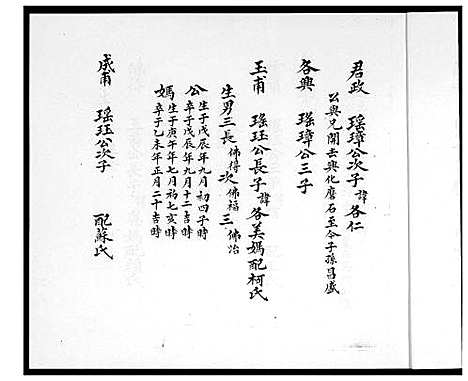 君政 瑤璋公次子諱各仁
公與兄開去興化磨石至今子孫昌盛
各興 瑤璋公三子
玉甫 瑤珏公長子諱各美媽配柯氏
生男三長佛得次佛福三佛治
公生于戊辰年九月初四子時
卒于戊辰年九月十二吉時
媽生于庚午年七月初七亥時
卒于乙未年正月二十吉時
成甫 瑤珏公次子 配蘇氏